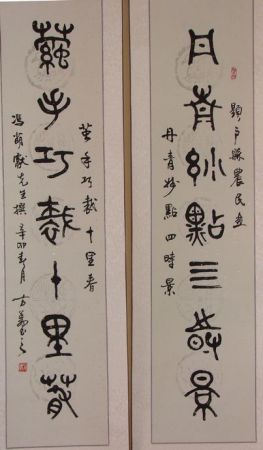 題户縣農民畫
丹青妙點亖時景
丹青妙點四時景
茧手巧裁十里春
繭手巧裁十里春
馮萌獻先生撰 辛卯春月